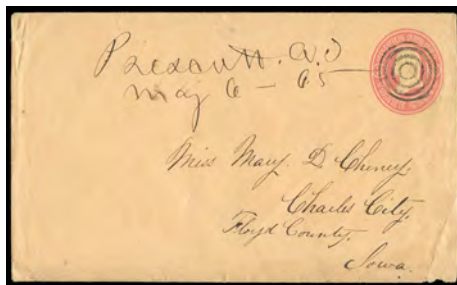 Prescott. A.T
May 6 - 65
Miss Mary. D. Cheney.
Charles City.
Floyd County.
Iowa.